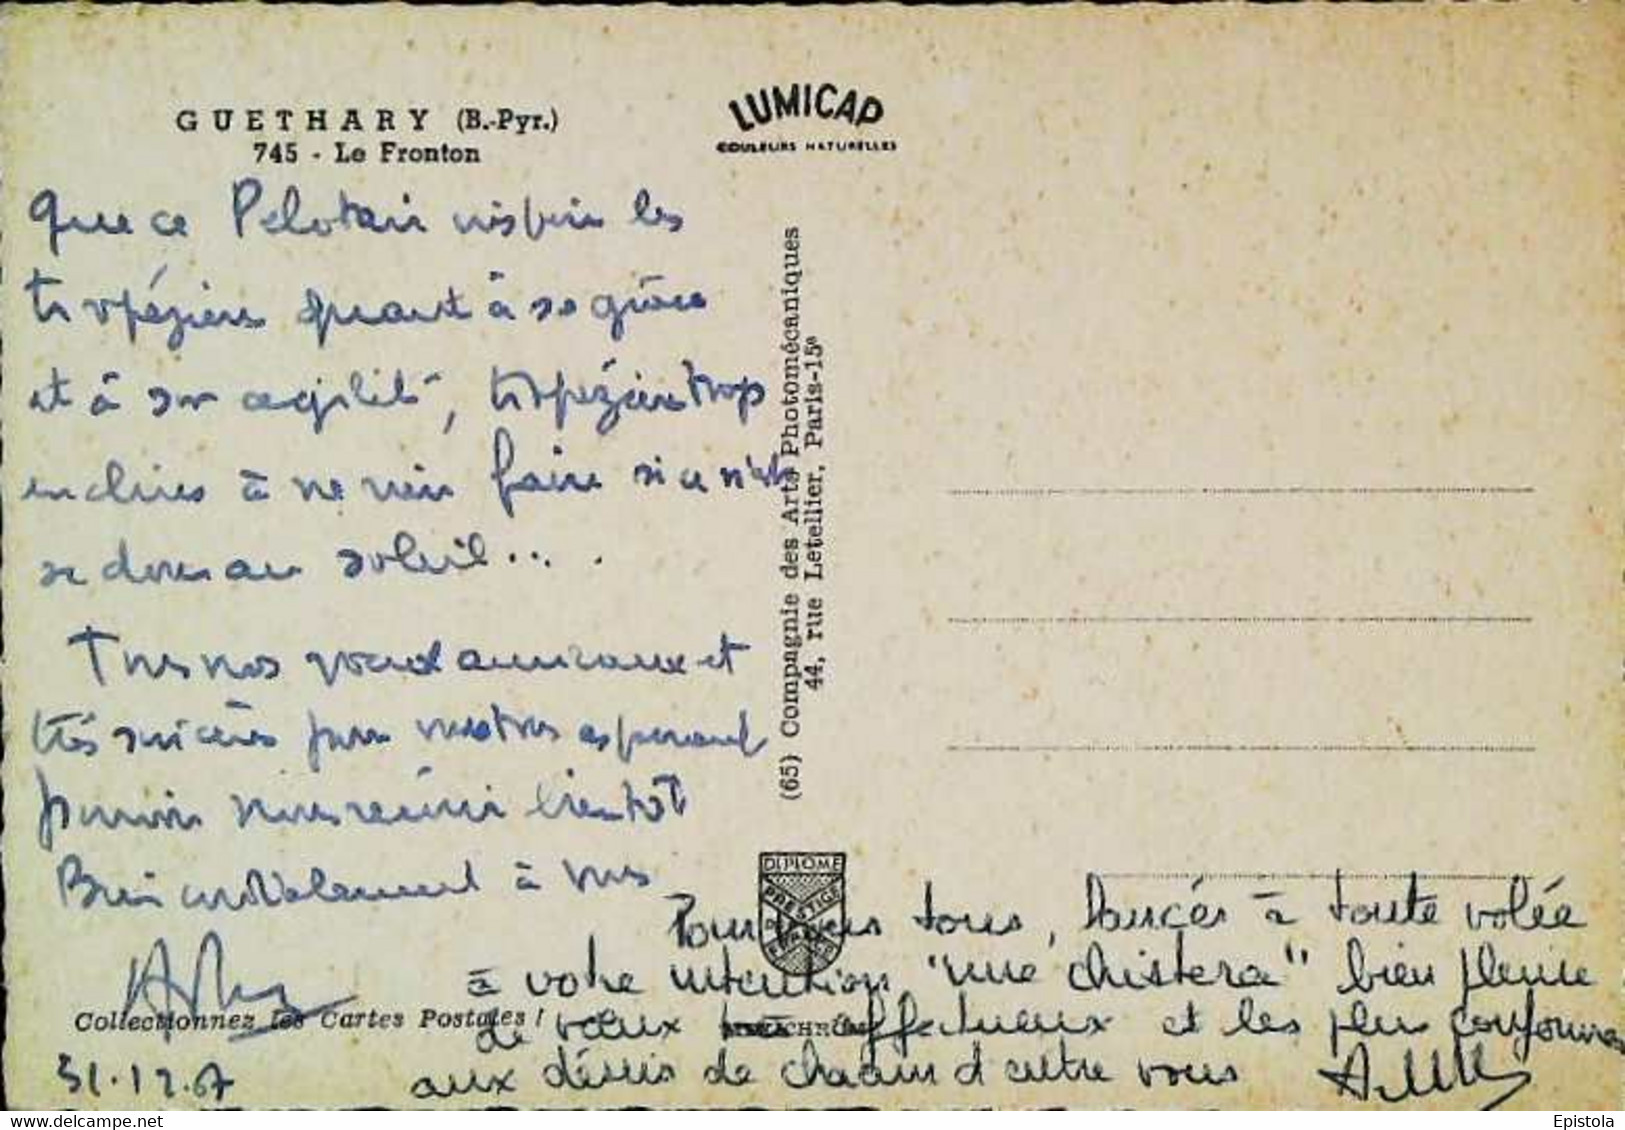 GUETHARY (B.-Pyr.)
745 - Le Fronton
LUMICAP
COULEURS NATURELLES
Que ce Pelotari inspire les
tropéziens quant à sa grâce
et à son agilité, tropéziens trop
enclins à ne rien faire si ce n'est
se dorer au soleil....
Tous nos voeux amicaux et
très sincères pour vous tous espérant
pouvoir nous réunir bientôt
Bien cordialement à vous
31.12.67
(65) Compagnie des Arts Photomécaniques
44, rue Letellier, Paris-15e
DIPLOME
PRESTIGE
DE
FRANCE
Collectionnez les Cartes Postales !
MEXICHROME
Pour vous tous, lancés à toute volée
à votre intention "une chistera" bien pleine
de voeux très affectueux et les plus conformes
aux désirs de chacun d'entre vous
Epistola